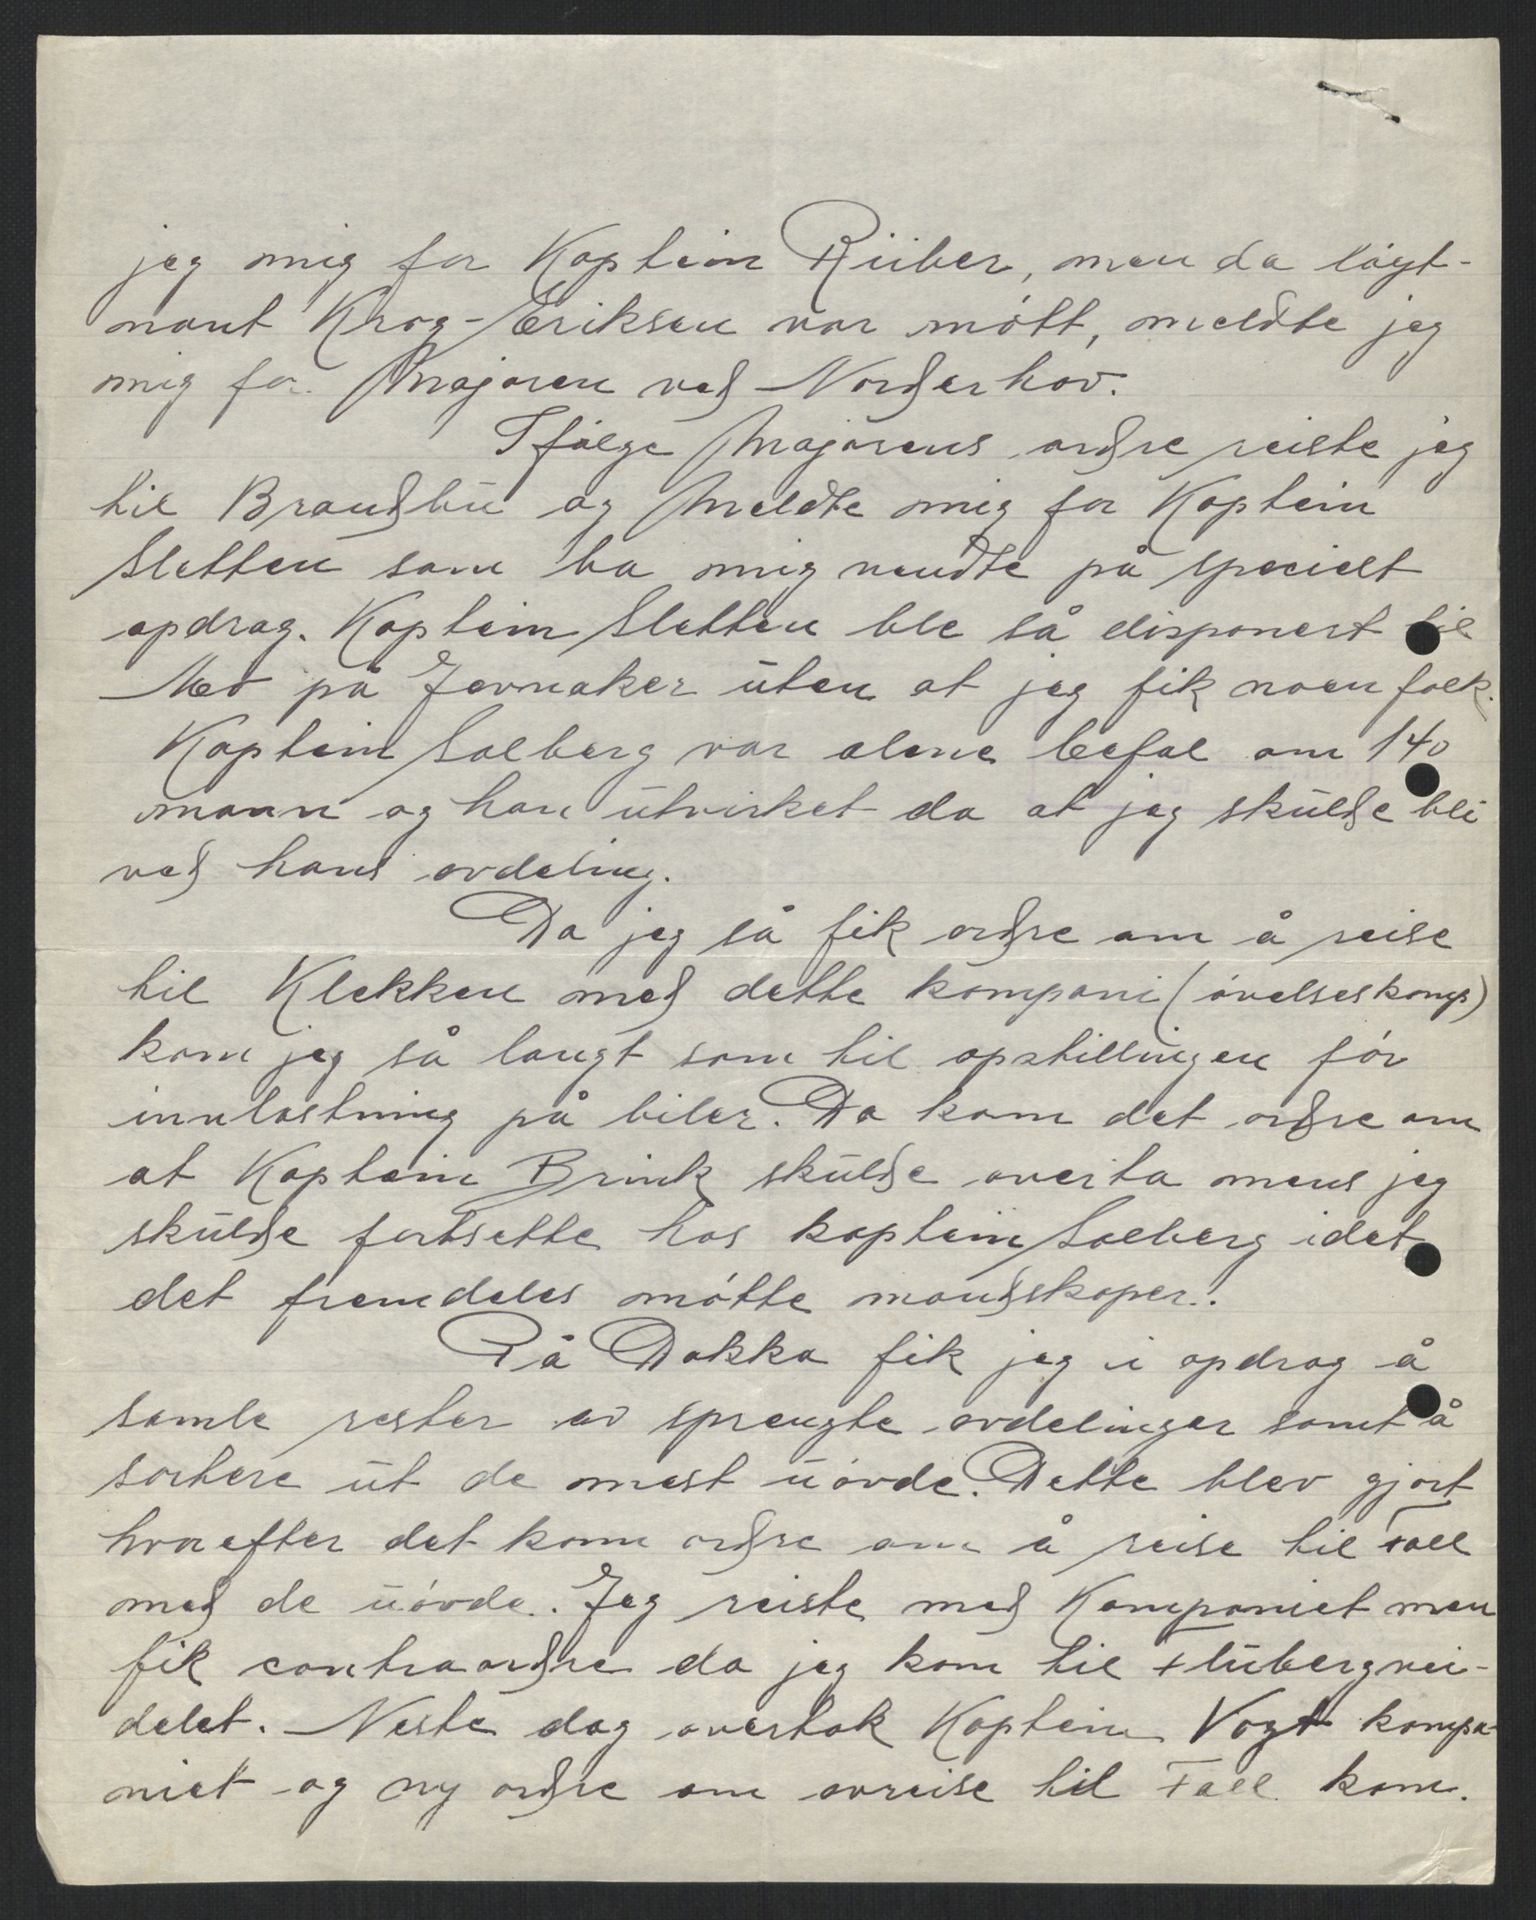 jeg mig for Kaptein Riiber, men da løyt-
nant Krog-Eriksen var møtt, meldte jeg
mig for Majoren ved Norderhov.
Ifølge Majorens ordre reiste jeg
til Brandbu og meldte mig for Kaptein
Sletten som ba mig vendte på specielt
opdrag. Kaptein Sletten ble så disponert til
Mo på Jevnaker uten at jeg fik noen folk.
Kaptein Solberg var alene befal om 140
mann og han utvirket da at jeg skulde bli
ved hans avdeling.
Da jeg så fik ordre om å reise
til Klekken med dette kompani (øvelseskomp)
kom jeg så langt som til opstillingen før
innlastning på biler. Da kom det ordre om
at Kaptein Brink skulde overta mens jeg
skulde fortsette hos kaptein Solberg idet
det fremdeles møtte mandskaper.
På Dokka fik jeg i opdrag å
samle rester av sprengte avdelinger samt å
sortere ut de mest uøvde. Dette blev gjort
hvorefter det kom ordre om å reise til Fall
med de uøvde. Jeg reiste med Kompaniet men
fik contraordre da jeg kom til Flubergvei-
delet. Neste dag overtok Kaptein Vogt kompa-
niet og ny ordre om avreise til Fall kom.